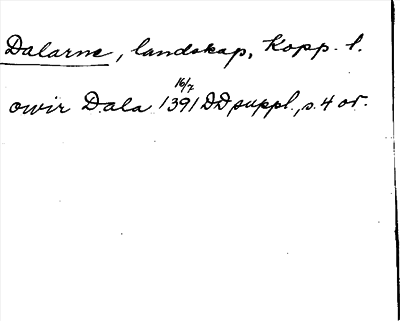 Dalarne, landskap, Kopp. l.
16/7
owir Dala 1391 DD suppl., s. 4 or.